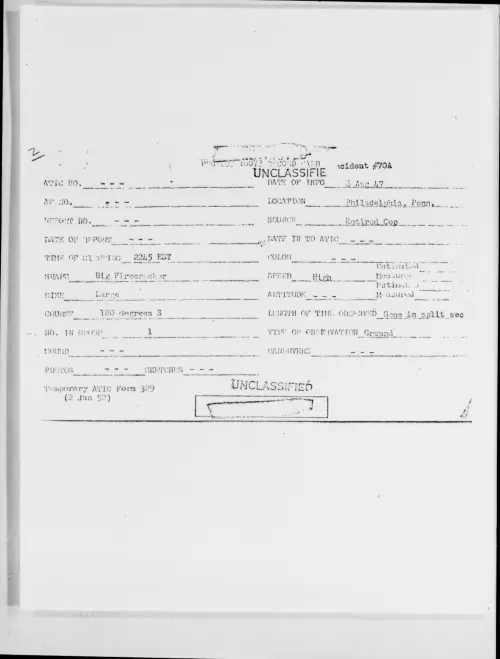 2
RECORD CARD ncident #70A
UNCLASSIFIE
ATIC NO. - - - DATE OF INFO 6 Aug 47
AF NO. - - - LOCATION Philadelphia, Penn.
REPORT NO. - - - SOURCE Retired Cop
DATE OF REPORT - - - DATE IN TO ATIC - - -
TIME OF SIGHTING 2245 EST COLOR - - -
SHAPE Big Firecracker SPEED High Estimated Measured
SIZE Large ALTITUDE - - - Estimated Measured
COURSE 180 degrees S LENGTH OF TIME OBSERVED Gone in split sec
NO. IN GROUP 1 TYPE OF OBSERVATION Ground
SOUND - - - MANEUVERS - - -
PHOTOS - - - SKETCHES - - -
Temporary ATIC Form 329
(2 Jan 52)
UNCLASSIFIED